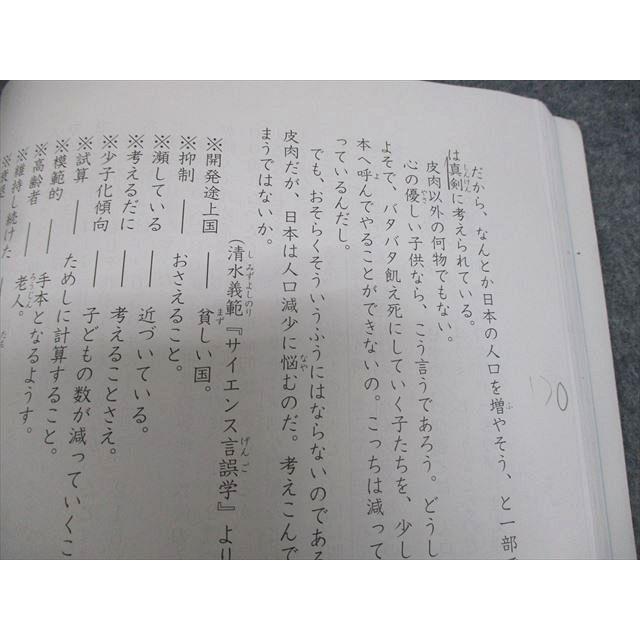 だから、なんとか日本の人口を増やそう、と一部
は真剣に考えられている。
皮肉以外の何物でもない。
心の優しい子供なら、こう言うであろう。どうし
よそで、バタバタ飢え死にしていく子たちを、少し
本へ呼んでやることができないの。こっちは減って
っているんだし。
でも、おそらくそういうふうにはならないのである
皮肉だが、日本は人口減少に悩むのだ。考えこんで
まうではないか。
（清水義範『サイエンス言誤学』より
※開発途上国 ―― 貧しい国。
※抑制 ―― おさえること。
※瀕している ―― 近づいている。
※考えるだに ―― 考えることさえ。
※少子化傾向 ―― 子どもの数が減っていくこ
※試算 ―― ためしに計算すること。
※模範的 ―― 手本となるようす。
※高齢者 ―― 老人。
※維持し続けた ――